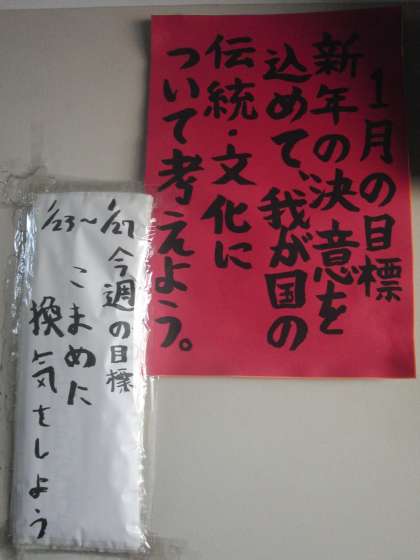 1月の目標
新年の決意を
込めて、我が国の
伝統・文化に
ついて考えよう。
1/23～1/27
今週の目標
こまめに
換気をしよう